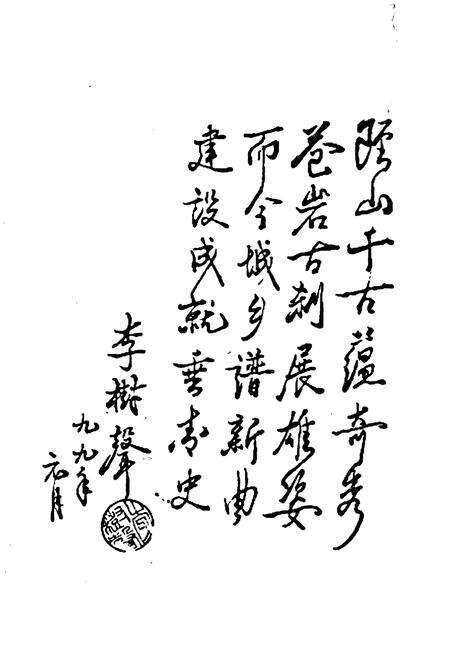 陉山千古蕴奇秀
苍岩古刹展雄姿
而今城乡谱新曲
建设成就垂青史
李樹聲
九九年
元月